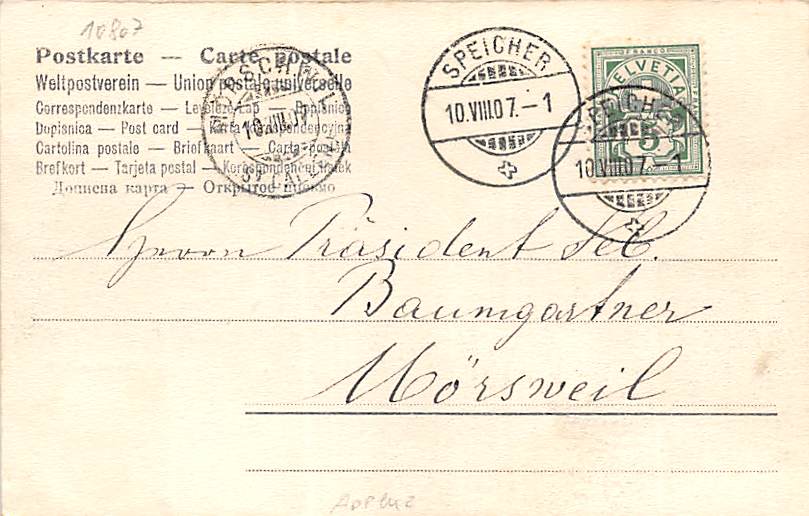 10807
Postkarte — Carte postale
Weltpostverein — Union postale universelle
Correspondenzkarte — Levelező-Lap — Dopisnice
Dopisnica — Post card — Karta korespondencyjna
Cartolina postale — Briefkaart — Carta postala
Brefkort — Tarjeta postal — Korespondenční lístek
Дописна карта — Открытое письмо
MÖRSCHWIL
10.VIII.07
ST. GALLEN
SPEICHER
10.VIII.07.-1
FRANCO
HELVETIA
5
SPEICHER
10.VIII.07.-1
Herrn Präsident Seb.
Baumgartner
Mörsweil